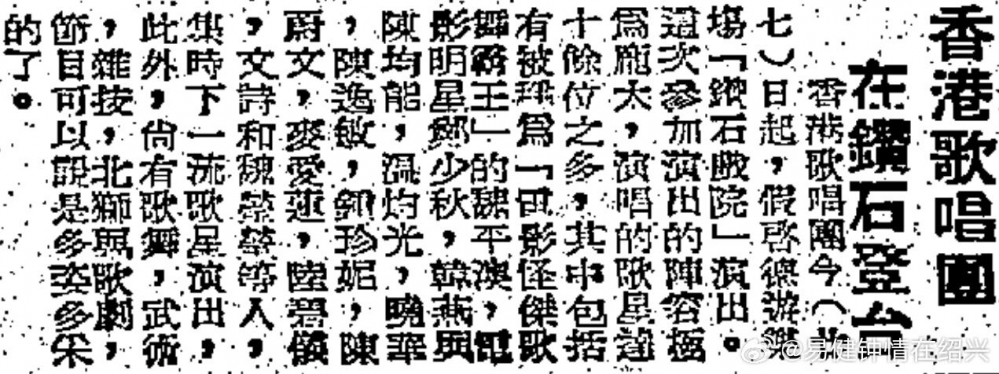 香港歌唱團
在鑽石登台
香港歌唱團今(廿
七)日起，假啓德游樂
場「鑽石戲院」演出。
這次參加演出的陣容極
爲龐大，演唱的歌星達
十餘位之多，其中包括
有被稱爲「電影怪傑歌
舞霸王」的魏平澳，電
影明星鄭少秋，韓燕與
陳均能，溫灼光，曉華
，陳逸敏，鍾珍妮，陳
蔚文，麥愛蓮，陸碧儀
，文詩和魏等人，
集時下一流歌星演出，
此外，尚有歌舞，武術
，雜技，北獅與歌劇，
節目可以說是多姿多采
的了。
@易健钟情在绍兴